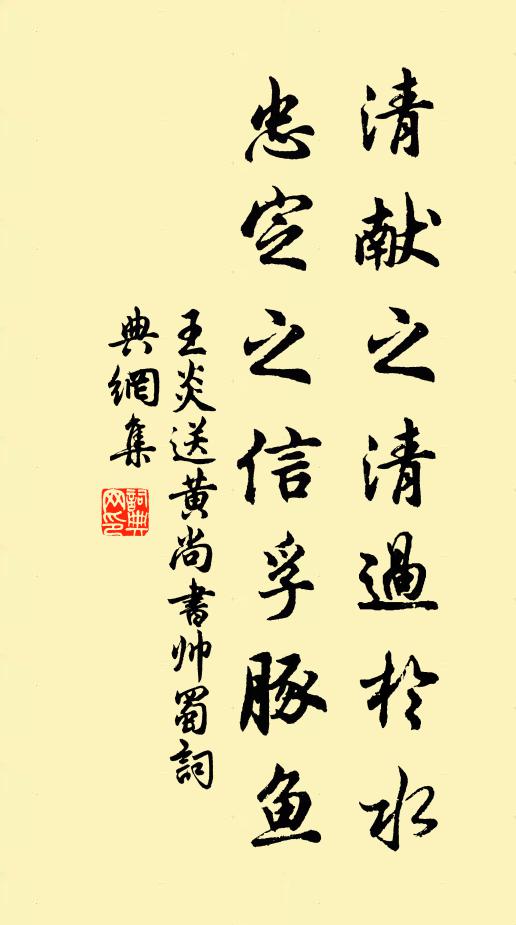 清献之清過於水
忠定之信孚豚鱼
王炎送黄尚書帅蜀詞
典網集
詞典网印